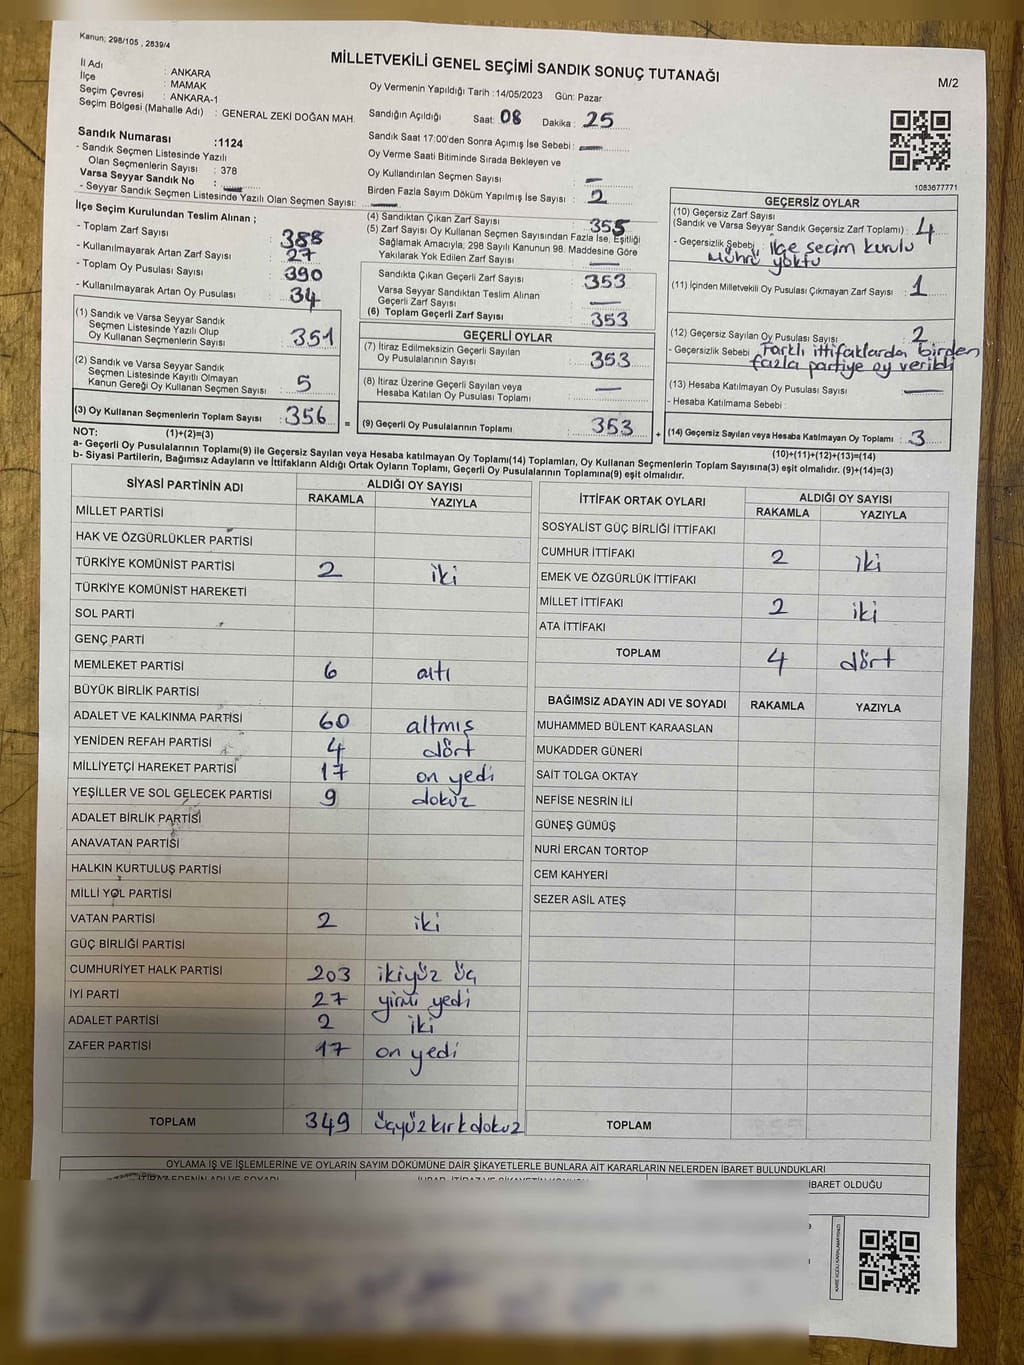 Kanun; 298/105 , 2839/4
MİLLETVEKİLİ GENEL SEÇİMİ SANDIK SONUÇ TUTANAĞI
M/2
İl Adı : ANKARA
İlçe : MAMAK
Seçim Çevresi : ANKARA-1
Seçim Bölgesi (Mahalle Adı) : GENERAL ZEKİ DOĞAN MAH.
Oy Vermenin Yapıldığı Tarih :14/05/2023 Gün: Pazar
Sandığın Açıldığı Saat: 08 Dakika: 25
Sandık Saat 17:00'den Sonra Açımış İse Sebebi : —
Oy Verme Saati Bitiminde Sırada Bekleyen ve
Oy Kullandırılan Seçmen Sayısı : —
Birden Fazla Sayım Döküm Yapılmış İse Sayısı : 2
Sandık Numarası :1124
- Sandık Seçmen Listesinde Yazılı
Olan Seçmenlerin Sayısı : 378
Varsa Seyyar Sandık No : —
- Seyyar Sandık Seçmen Listesinde Yazılı Olan Seçmen Sayısı: —
1083677771
İlçe Seçim Kurulundan Teslim Alınan ;
- Toplam Zarf Sayısı : 388
- Kullanılmayarak Artan Zarf Sayısı : 27
- Toplam Oy Pusulası Sayısı : 390
- Kullanılmayarak Artan Oy Pusulası : 34
(1) Sandık ve Varsa Seyyar Sandık
Seçmen Listesinde Yazılı Olup
Oy Kullanan Seçmenlerin Sayısı : 351
(2) Sandık ve Varsa Seyyar Sandık
Seçmen Listesinde Kayıtlı Olmayan
Kanun Gereği Oy Kullanan Seçmen Sayısı : 5
(3) Oy Kullanan Seçmenlerin Toplam Sayısı : 356 =
(1)+(2)=(3)
(4) Sandıktan Çıkan Zarf Sayısı : 355
(5) Zarf Sayısı Oy Kullanan Seçmen Sayısından Fazla İse, Eşitliği
Sağlamak Amacıyla; 298 Sayılı Kanunun 98. Maddesine Göre
Yakılarak Yok Edilen Zarf Sayısı : —
Sandıkta Çıkan Geçerli Zarf Sayısı : 353
Varsa Seyyar Sandıktan Teslim Alınan
Geçerli Zarf Sayısı : —
(6) Toplam Geçerli Zarf Sayısı : 353
GEÇERLİ OYLAR
(7) İtiraz Edilmeksizin Geçerli Sayılan
Oy Pusulalarının Sayısı : 353
(8) İtiraz Üzerine Geçerli Sayılan veya
Hesaba Katılan Oy Pusulası Toplamı : —
(9) Geçerli Oy Pusulalarının Toplamı : 353 +
GEÇERSİZ OYLAR
(10) Geçersiz Zarf Sayısı
(Sandık ve Varsa Seyyar Sandık Geçersiz Zarf Toplamı) : 4
- Geçersizlik Sebebi : ilçe seçim kurulu
Mührü yoktu
(11) İçinden Milletvekili Oy Pusulası Çıkmayan Zarf Sayısı : 1
(12) Geçersiz Sayılan Oy Pusulası Sayısı : 2
- Geçersizlik Sebebi : Farklı ittifaklarda birden
fazla partiye oy verildi
(13) Hesaba Katılmayan Oy Pusulası Sayısı : —
- Hesaba Katılmama Sebebi :
(14) Geçersiz Sayılan veya Hesaba Katılmayan Oy Toplamı : 3
(10)+(11)+(12)+(13)=(14)
NOT:
a- Geçerli Oy Pusulalarının Toplamı(9) ile Geçersiz Sayılan veya Hesaba katılmayan Oy Toplamı(14) Toplamları, Oy Kullanan Seçmenlerin Toplam Sayısına(3) eşit olmalıdır. (9)+(14)=(3)
b- Siyasi Partilerin, Bağımsız Adayların ve İttifakların Aldığı Ortak Oyların Toplamı, Geçerli Oy Pusulalarının Toplamına(9) eşit olmalıdır.
SİYASİ PARTİNİN ADI ALDIĞI OY SAYISI
RAKAMLA YAZIYLA
MİLLET PARTİSİ
HAK VE ÖZGÜRLÜKLER PARTİSİ
TÜRKİYE KOMÜNİST PARTİSİ 2 iki
TÜRKİYE KOMÜNİST HAREKETİ
SOL PARTİ
GENÇ PARTİ
MEMLEKET PARTİSİ 6 altı
BÜYÜK BİRLİK PARTİSİ
ADALET VE KALKINMA PARTİSİ 60 altmış
YENİDEN REFAH PARTİSİ 4 dört
MİLLİYETÇİ HAREKET PARTİSİ 17 on yedi
YEŞİLLER VE SOL GELECEK PARTİSİ 9 dokuz
ADALET BİRLİK PARTİSİ
ANAVATAN PARTİSİ
HALKIN KURTULUŞ PARTİSİ
MİLLİ YOL PARTİSİ
VATAN PARTİSİ 2 iki
GÜÇ BİRLİĞİ PARTİSİ
CUMHURİYET HALK PARTİSİ 203 ikiyüz üç
İYİ PARTİ 27 yirmi yedi
ADALET PARTİSİ 2 iki
ZAFER PARTİSİ 17 on yedi
TOPLAM 349 üçyüzkırkdokuz
İTTİFAK ORTAK OYLARI ALDIĞI OY SAYISI
RAKAMLA YAZIYLA
SOSYALİST GÜÇ BİRLİĞİ İTTİFAKI
CUMHUR İTTİFAKI 2 iki
EMEK VE ÖZGÜRLÜK İTTİFAKI
MİLLET İTTİFAKI 2 iki
ATA İTTİFAKI
TOPLAM 4 dört
BAĞIMSIZ ADAYIN ADI VE SOYADI RAKAMLA YAZIYLA
MUHAMMED BÜLENT KARAASLAN
MUKADDER GÜNERİ
SAİT TOLGA OKTAY
NEFİSE NESRİN İLİ
GÜNEŞ GÜMÜŞ
NURİ ERCAN TORTOP
CEM KAHYERİ
SEZER ASİL ATEŞ
TOPLAM
OYLAMA İŞ VE İŞLEMLERİNE VE OYLARIN SAYIM DÖKÜMÜNE DAİR ŞİKAYETLERLE BUNLARA AİT KARARLARIN NELERDEN İBARET BULUNDUKLARI
İTİRAZ EDENİN ADI VE SOYADI
İBARET OLDUĞU